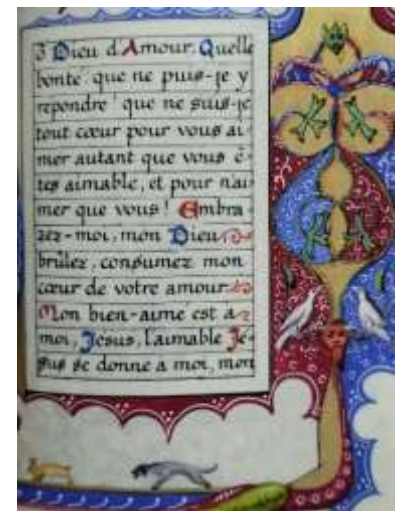 3 Dieu d'Amour. Quelle
bonté que ne puis-je y
repondre! que ne suis-je
tout cœur pour vous ai-
mer autant que vous ê-
tes aimable, et pour n'ai-
mer que vous! Embra-
zez-moi, mon Dieu
brûlez, consumez mon
cœur de votre amour.
Mon bien-aimé est a
moi, Jesus, l'aimable Jé-
sus se donne a moi, mon